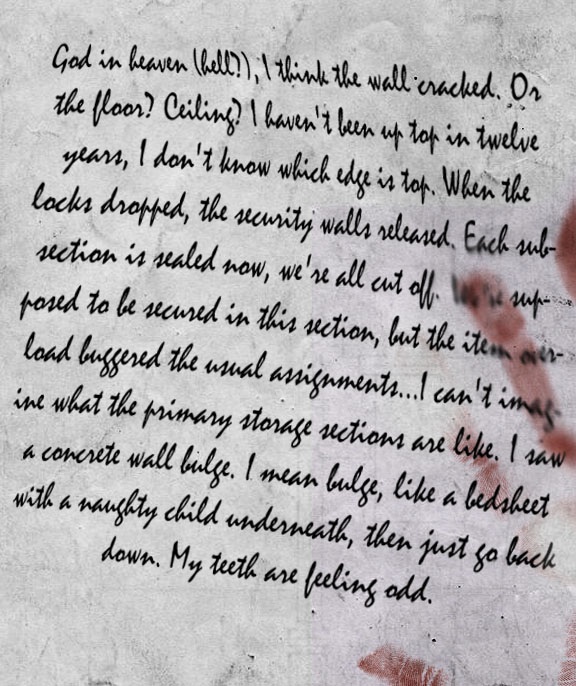 God in heaven (hell?), I think the wall cracked. Or
the floor? Ceiling? I haven't been up top in twelve
years, I don't know which edge is top. When the
locks dropped, the security walls released. Each sub-
section is sealed now, we're all cut off. We're sup-
posed to be secured in this section, but the item over-
load buggered the usual assignments...I can't imag-
ine what the primary storage sections are like. I saw
a concrete wall bulge. I mean bulge, like a bedsheet
with a naughty child underneath, then just go back
down. My teeth are feeling odd.